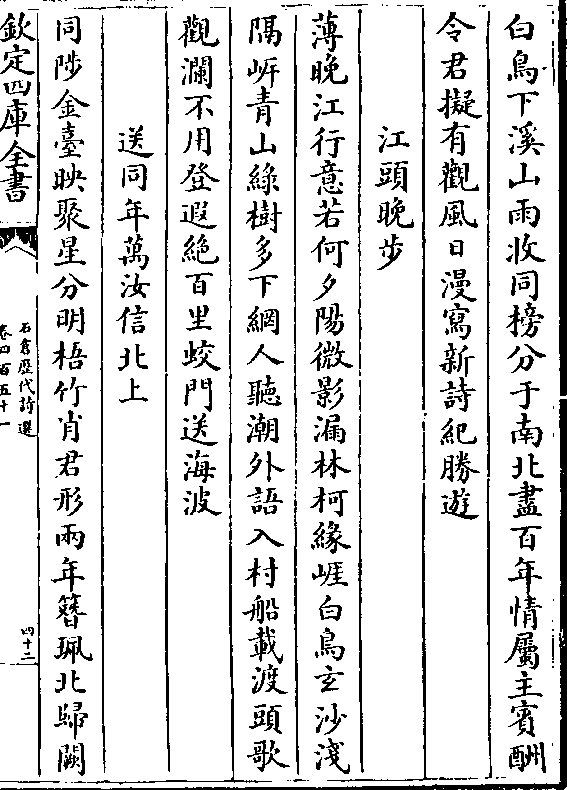 白鳥下溪山雨收同榜分于南北盡百年情屬主賓酬
令君擬有觀風日漫寫新詩紀勝遊
江頭晚步
薄晚江行意若何夕陽微影漏林柯緣崕白鳥玄沙淺
隔㟁青山綠樹多下網人聽潮外語入村船載渡頭歌
觀瀾不用登遐絶百里蛟門送海波
送同年萬汝信北上
同陟金臺映聚星分明梧竹肖君形兩年簪珮北歸闕
欽定四庫全書
石倉歷代詩選
卷四百五十一
四十二